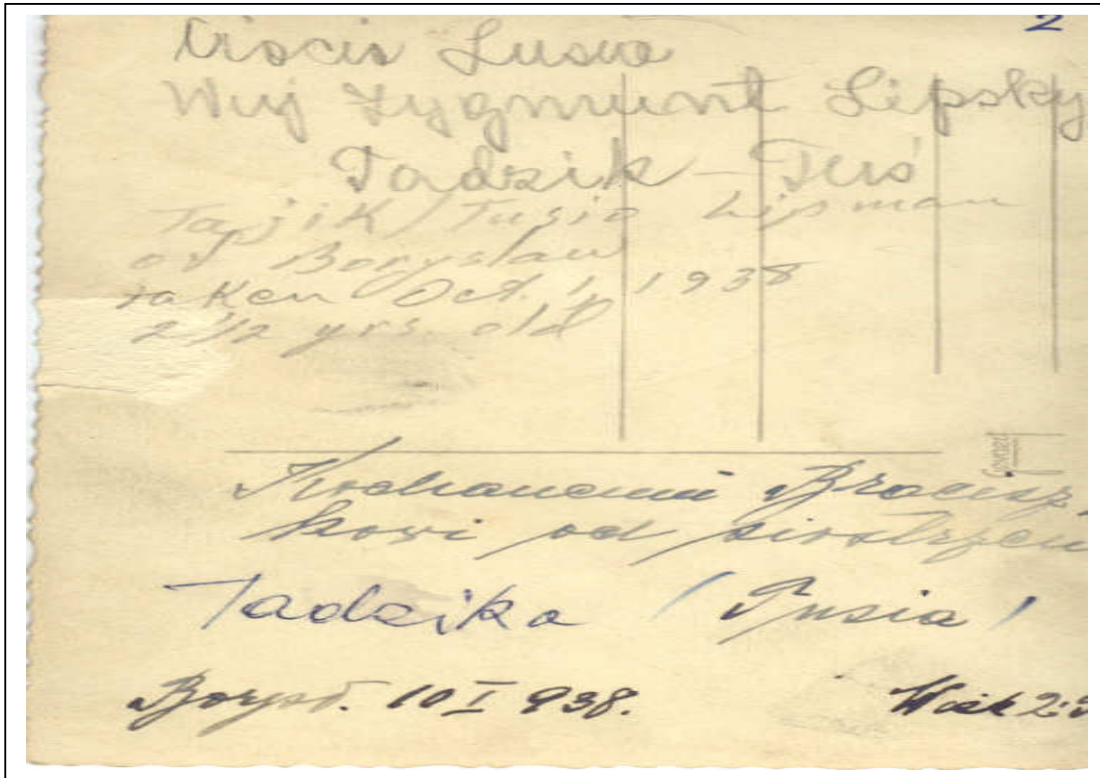 2
Ciocia Lusia
Wuj Zygmunt Lipsky
Tadzik - Tuś
Tajik / Tusio Lipman
of Boryslaw
taken Oct. 1, 1938
2 1/2 yrs. old
Kochanemu Bracisz
kowi od
Tadzika (Tusia)
10 I 938.
Wiek 2